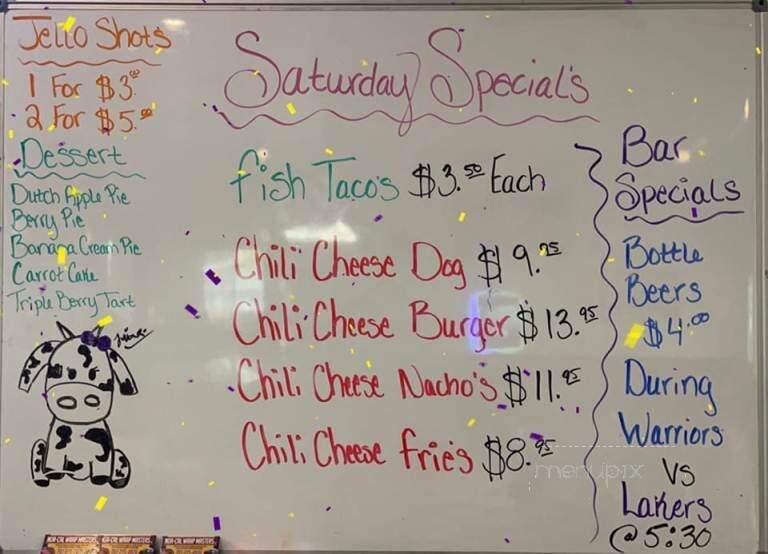 Jello Shots
1 For $3.00
2 For $5.00
Dessert
Dutch Apple Pie
Berry Pie
Banana Cream Pie
Carrot Cake
Triple Berry Tart
Saturday Special's
Fish Taco's $3.50 Each
Chili Cheese Dog $9.75
Chili Cheese Burger $13.95
Chili Cheese Nacho's $11.95
Chili Cheese Frie's $8.95
Bar
Specials
Bottle
Beers
$4.00
During
Warriors
VS
Lakers
@ 5:30
menupix